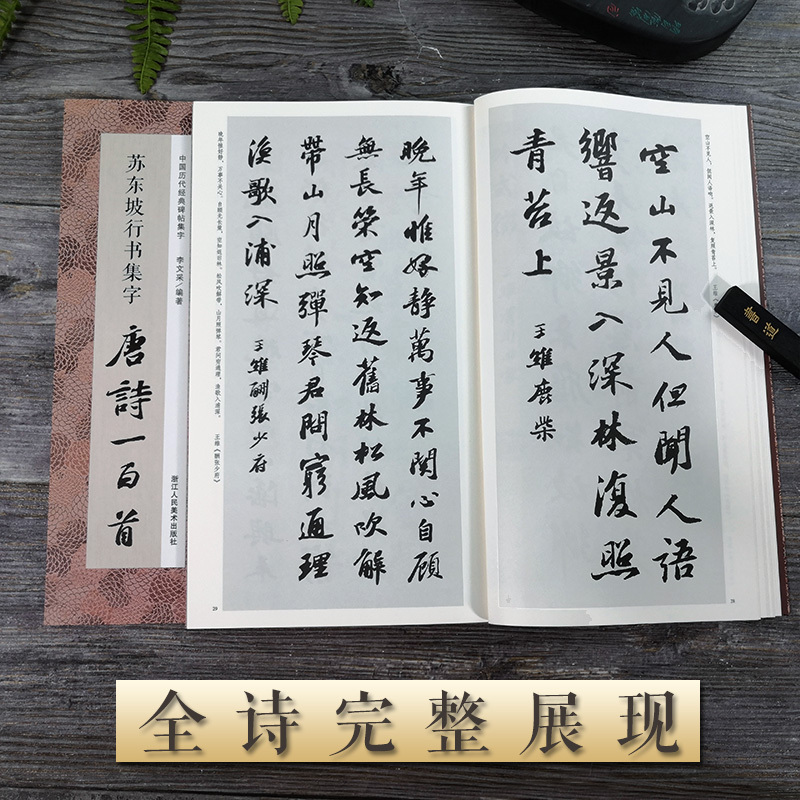 中国历代经典碑帖集字 李文采／编著
浙江人民美术出版社
苏东坡行书集字
唐詩一百首
空山不见人，但闻人语响。返景入深林，复照青苔上。 王维
空山不見人但聞人語
響返景入深林復照
青苔上
王維鹿柴
28
晚年惟好静萬事不関心自顧
無長策空知返舊林松風吹解
帶山月照彈琴君問窮通理
漁歌入浦深
王維酬張少府
晚年惟好静，万事不关心。自顾无长策，空知返旧林。松风吹解带，山月照弹琴。君问穷通理，渔歌入浦深。 王维《酬张少府》
29
書道
全诗完整展现